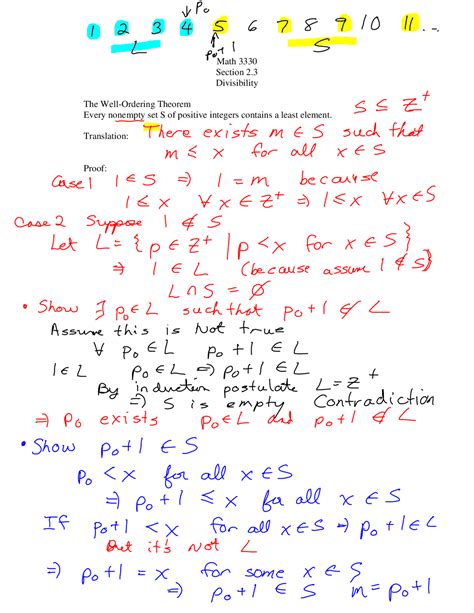 p₀
1 2 3 4 5 6 7 8 9 10 11 ...
L p₀+1 S
Math 3330
Section 2.3
Divisibility
The Well-Ordering Theorem
S ⊆ Z⁺
Every nonempty set S of positive integers contains a least element.
Translation: There exists m ∈ S such that
m ≤ x for all x ∈ S
Proof:
Case 1 1 ∈ S ⇒ 1 = m because
1 ≤ x ∀ x ∈ Z⁺ ⇒ 1 ≤ x ∀x ∈ S
Case 2 Suppose 1 ∉ S
Let L = {p ∈ Z⁺ | p < x for x ∈ S}
⇒ 1 ∈ L (because assume 1 ∉ S)
L ∩ S = ∅
• Show ∃ p₀ ∈ L such that p₀+1 ∉ L
Assume this is Not true
∀ p₀ ∈ L p₀+1 ∈ L
1 ∈ L p₀ ∈ L ⇒ p₀+1 ∈ L
By induction postulate L = Z⁺
⇒ S is empty Contradiction
⇒ p₀ exists p₀ ∈ L and p₀+1 ∉ L
• Show p₀+1 ∈ S
p₀ < x for all x ∈ S
⇒ p₀+1 ≤ x for all x ∈ S
If p₀+1 < x for all x ∈ S ⇒ p₀+1 ∈ L
But it's Not L
⇒ p₀+1 = x for some x ∈ S
⇒ p₀+1 ∈ S m = p₀+1